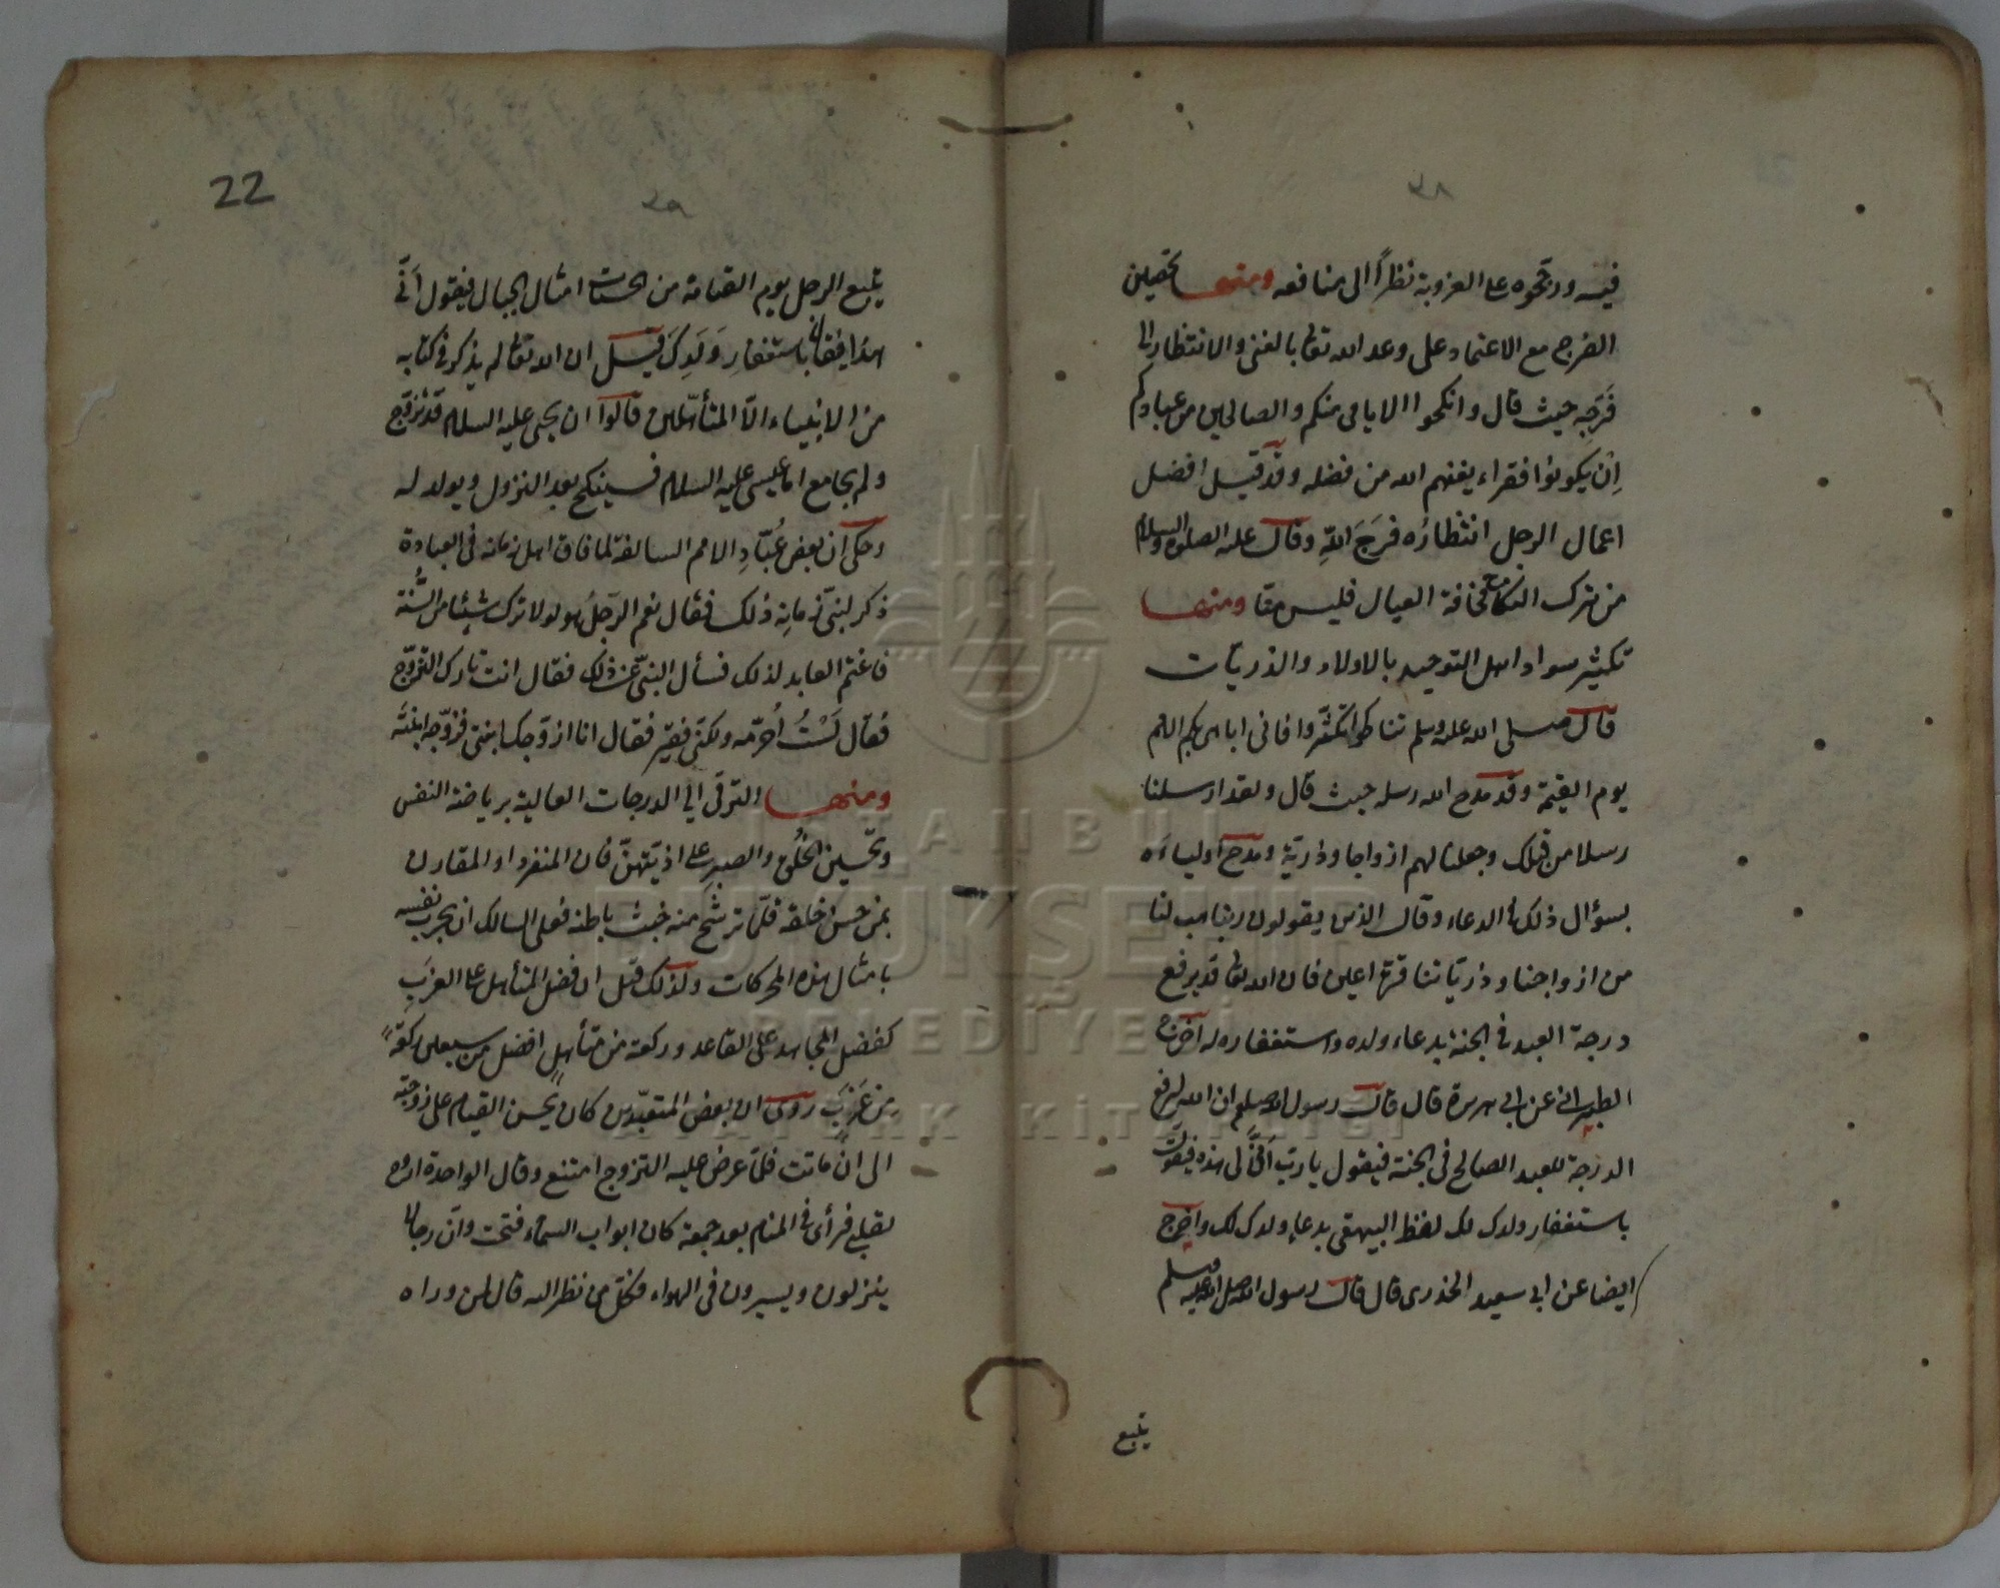 ٢٨
فيه ورجحوه على العزوبة نظرًا الى منافعه ومنها تحصين
الفرج مع الاعتماد على وعد الله تعا بالغنى والانتظار الى
فَرَجِه حيث قال وانكحوا الايامى منكم والصالحين من عبادكم
اِن يكونوا فقراء يغنهم الله من فضله وقد قيل افضل
اعمال الرجل انتظارُه فرَجَ اللهِ وقال عليه الصلوة والسلام
من ترك النكاح مخافة العيال فليس منا ومنها
تكثير سواد اهل التوحيد بالاولاد والذريات
قال صلى الله عليه وسلم تناكحوا تكثّروا فانى اباهى بكم الامم
يوم القيمة وقد مدح الله رسله حيث قال ولقد ارسلنا
رسلا من قبلك وجعلنا لهم ازواجا وذرية ومدح اولياءه
بسؤال ذلك فى الدعاء وقال الذين يقولون ربنا هب لنا
من ازواجنا وذرياتنا قرة اعين فان الله تعا قد يرفع
درجة العبد فى الجنة بدعاء ولده واستغفاره له اخرج
الطبرانى عن ابى هريرة قال قال رسول الله صلعم ان الله ليرفع
الدرجة للعبد الصالح فى الجنة فيقول يا رب اَنّى لى هذه فيقول
باستغفار ولدك لك لفظ البيهقى بدعاء ولدك لك واخرج
ايضا عن ابى سعيد الخذرى قال قال رسول الله صلى الله عليه وسلم
يتبع
22
٢٩
يتبع الرجل يوم القيامة من الحسنات امثال الجبال فيقول اَنّى
هذا فيقال باستغفارِ وَلَدِكَ قيل ان الله تعا لم يذكر فى كتابه
من الانبياء الّا المتأهّلين قالوا ان يحيى عليه السلام قد تزوّج
ولم يجامع اما عيسى عليه السلام فسينكح بعد النزول ويولد له
وحكى ان بعض عُبّادِ الامم السالفة لما فاق اهل زمانه فى العبادة
ذكر لنبىّ زمانِه ذلك فقال نعم الرّجلُ هو لولا ترك شيئا من السُّنّة
فاغتم العابد لذلك فسأل النبىّ عن ذلك فقال انت تارك التزوّج
فقال لَسْتُ اُحرّمه ولكنّى فقير فقال انا ازوّجك ابنتى فزوّجه ابنته
ومنها الترقى الى الدرجات العالية برياضة النفس
وتحسين الخُلُق والصبر على اذيّتهنّ فان المنفرد او المقارن
بمن حسن خلقه فلمّا ترشّح منه خبث باطنه فعلى السالك ان يجرب نفسه
بامثال هذه المحركات ولذلك قيل ان فضل المتأهل على العزَبِ
كفضل المجاهد على القاعد وركعة من متأهلٍ افضل من سبعين ركعةً
من عَزَبٍ روى ان بعض المتعبّدين كان يحسن القيام على زوجته
الى ان ماتت فلمّا عرض عليه التزوج امتنع وقال الواحدة اروح
لقلبى فرأى فى المنام بعد جمعة كان ابواب السماء فتحت وان رجالا
ينزلون ويسيرون فى الهواء فكل من نظر اليه قال لمن وراه